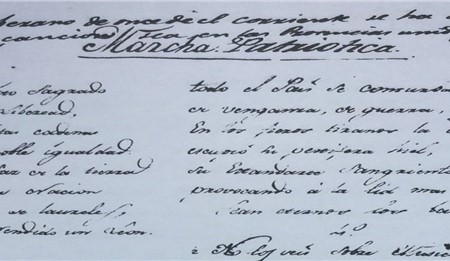 berano de once del corriente se ha
cancion en las Provincias unid
Marcha Patriotica.
ito Sagrado
Libertad,
tas cadenas
oble igualdad
faz de la tierra
a Nacion
de laureles,
endido un Leon.
todo el País se conturba
de venganza, de guerra,
En los fieros tiranos la
su pestifera hiel,
Su Estandarte Sangriento
provocando á la lid mas
Sean eternos los la
No los veis sobre